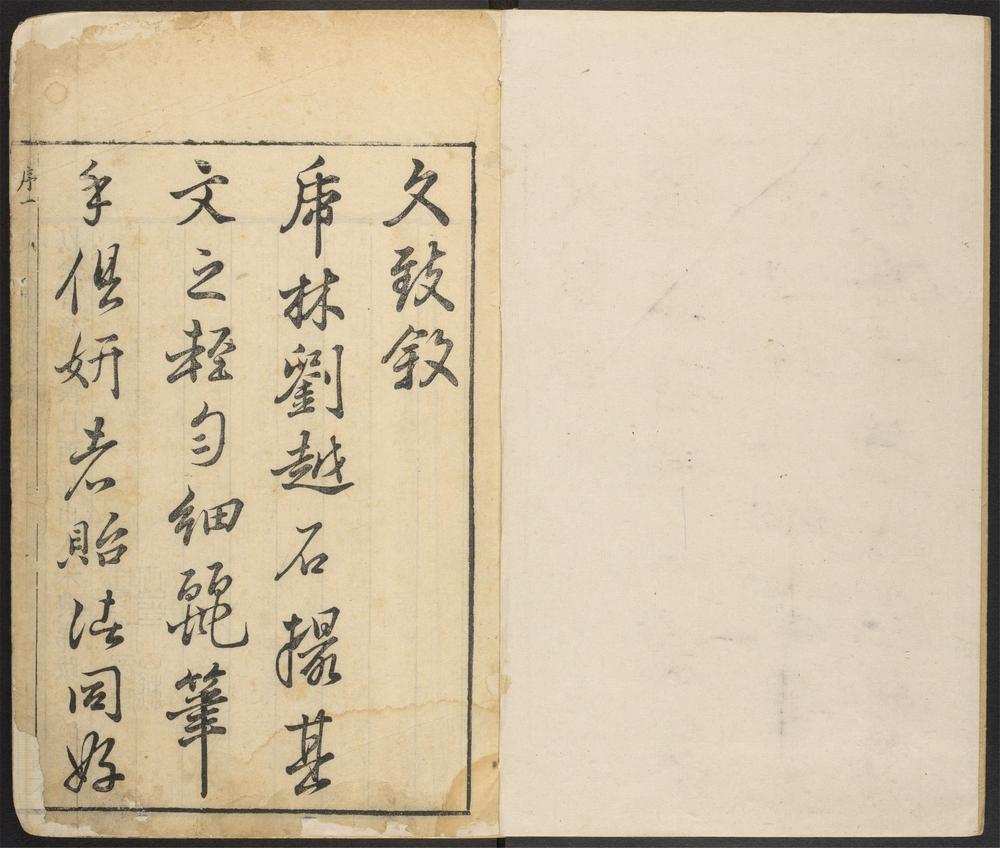 文致敘
虎林劉越石撮其
文之輕勻細麗筆
手俱妍者貽法同好
序一